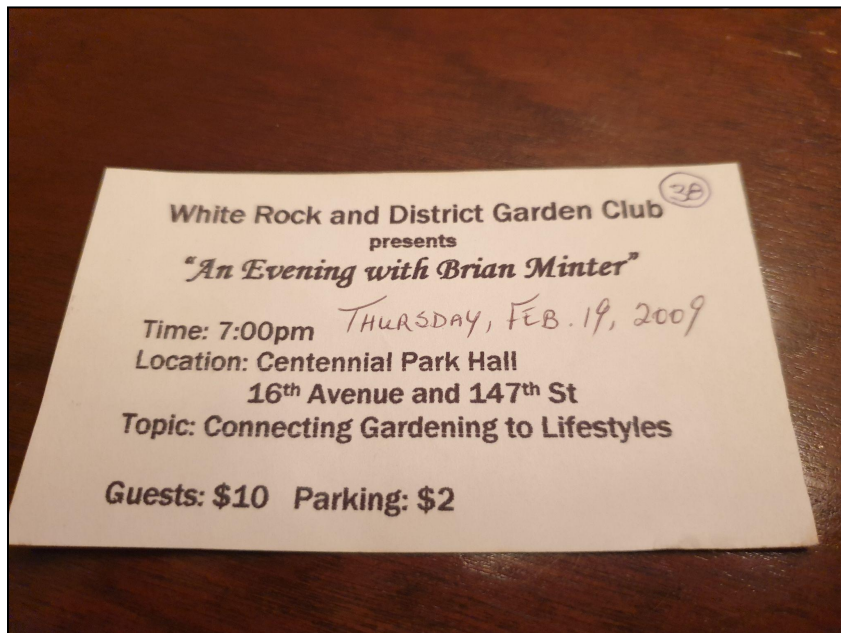 38
White Rock and District Garden Club
presents
"An Evening with Brian Minter"
Time: 7:00pm THURSDAY, FEB. 19, 2009
Location: Centennial Park Hall
16th Avenue and 147th St
Topic: Connecting Gardening to Lifestyles
Guests: $10 Parking: $2